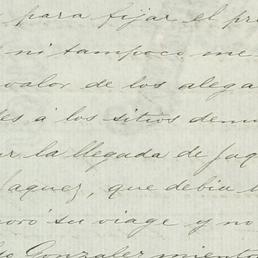 para fijar el pre
ni tampoco me
valor de los alega
es á los sitios denu
ar la llegada de Jaq
Jaquez, que debia
oró su viage y no
Gonzalez mient